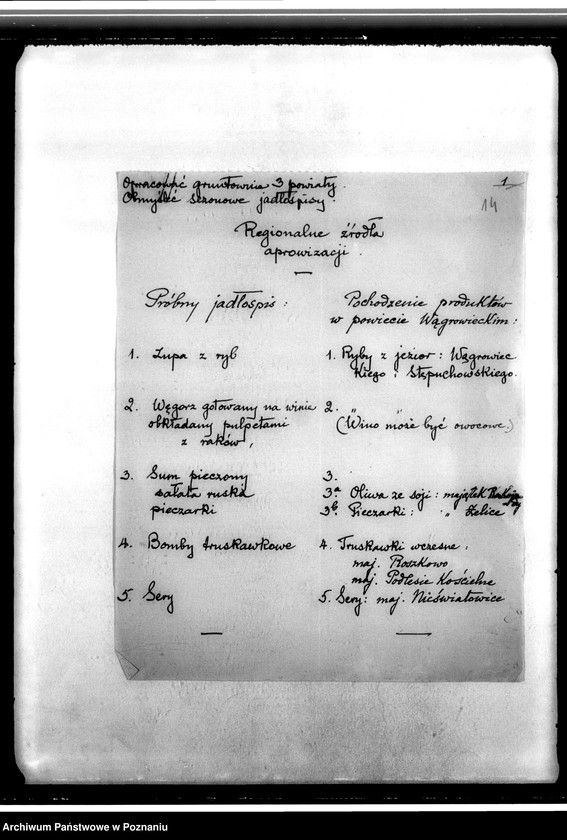 Opracować gruntownie 3 powiaty.
Obmyśleć sezonowe jadłospisy.
1
14
Regionalne źródła
aprowizacji.
Próbny jadłospis:
1. Zupa z ryb
2. Węgorz gotowany na winie
obkładany pulpetami
z raków,
3. Sum pieczony
sałata ruska
pieczarki
4. Bomby truskawkowe
5. Sery
Pochodzenie produktów
w powiecie Wągrowieckim:
1. Ryby z jezior: Wągrowiec
kiego i Stępuchowskiego.
2. " "
(Wino może być owocowe.)
3.
3a Oliwa ze soji: majątek
3b Pieczarki: " Żelice
4. Truskawki wczesne,
maj. Roszkowo
maj. Podlesie Kościelne
5. Sery: maj. Nieświatowice
Archiwum Państwowe w Poznaniu